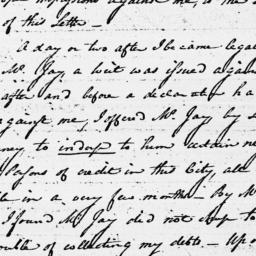 impressions against me, to the
of this Letter
A day or two after I became legal
Mr. Jay, a writ was issued again
after and before a declaration ha
against me, I offered Mr. Jay by
ney to indorse to him certain
Persons of credit in this City, all
in a very few months — By M
I found Mr Jay did not to
ouble of collecting my debts. — Upo